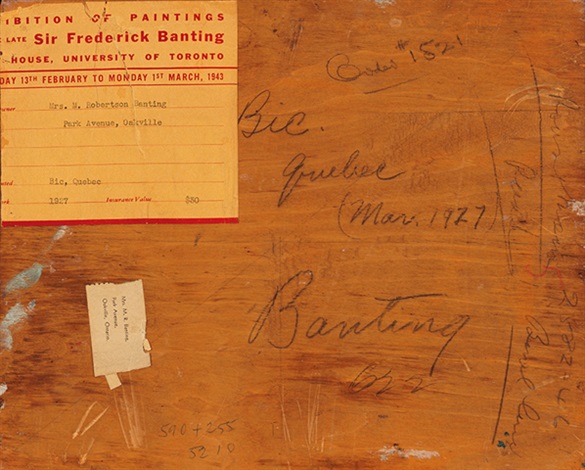 IBITION OF PAINTINGS
LATE Sir Frederick Banting
HOUSE, UNIVERSITY OF TORONTO
DAY 13TH FEBRUARY TO MONDAY 1ST MARCH, 1943
Mrs. M. Robertson Banting
Park Avenue, Oakville
Bic, Quebec
1927 Insurance Value $30
Order #1821
Bic.
Quebec
(Mar. 1927)
Banting
Mrs. M. R. Banting,
Park Avenue,
Oakville, Ontario
510+255
5210